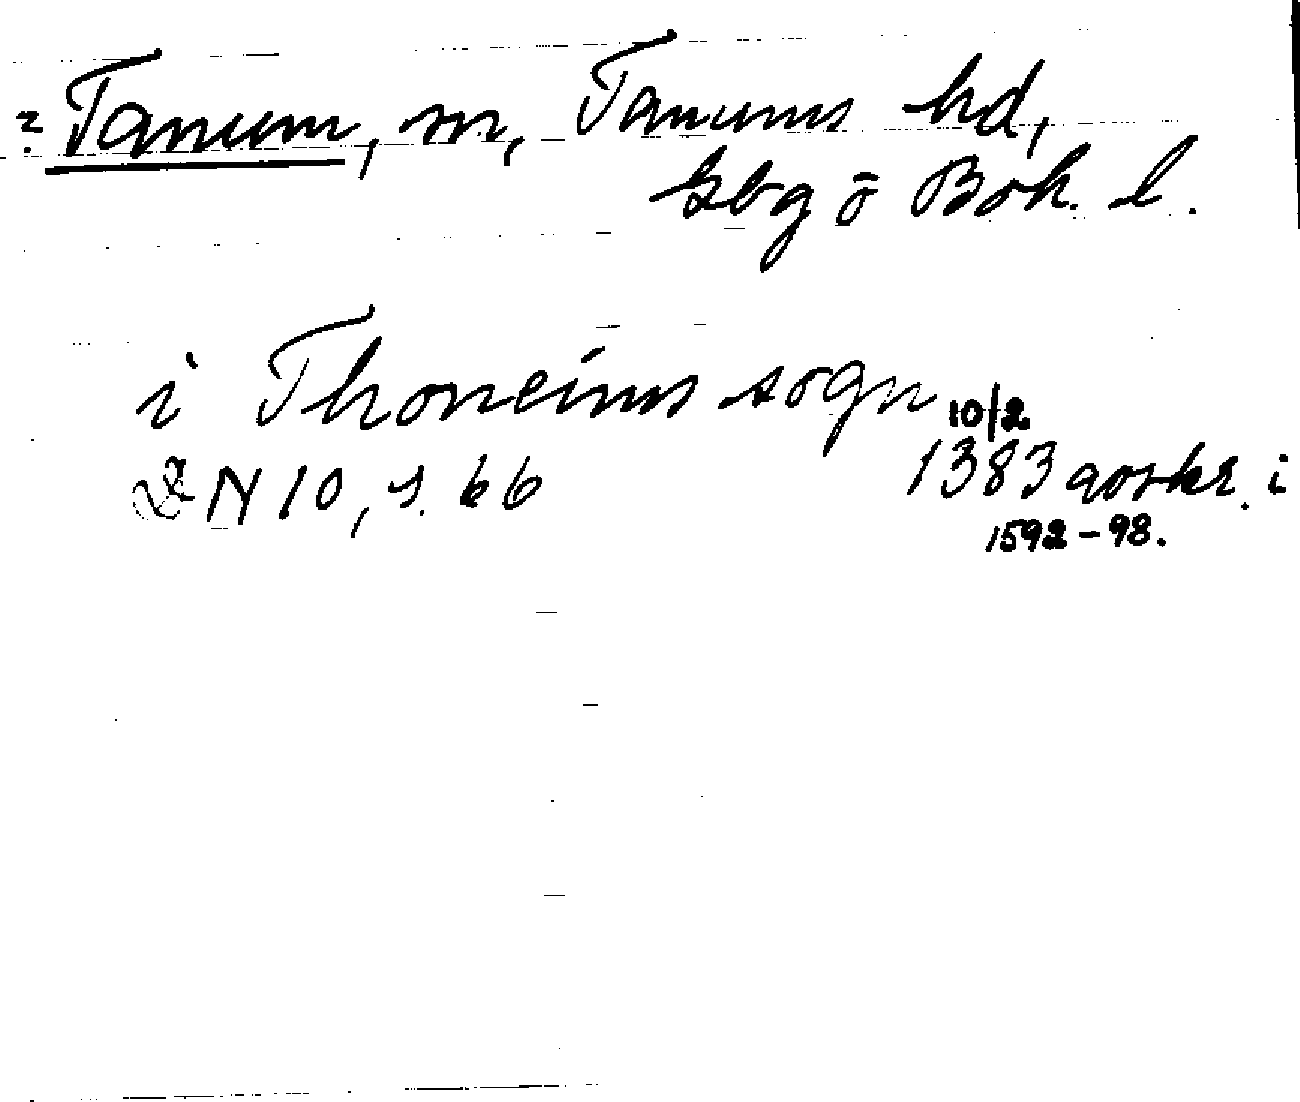 ? Tanum, sn, Tanums hd,
Gbg o Boh. l.
i Thoneims sogn 10/2
DN 10, s. 66 1383 avskr. i
1592-98.